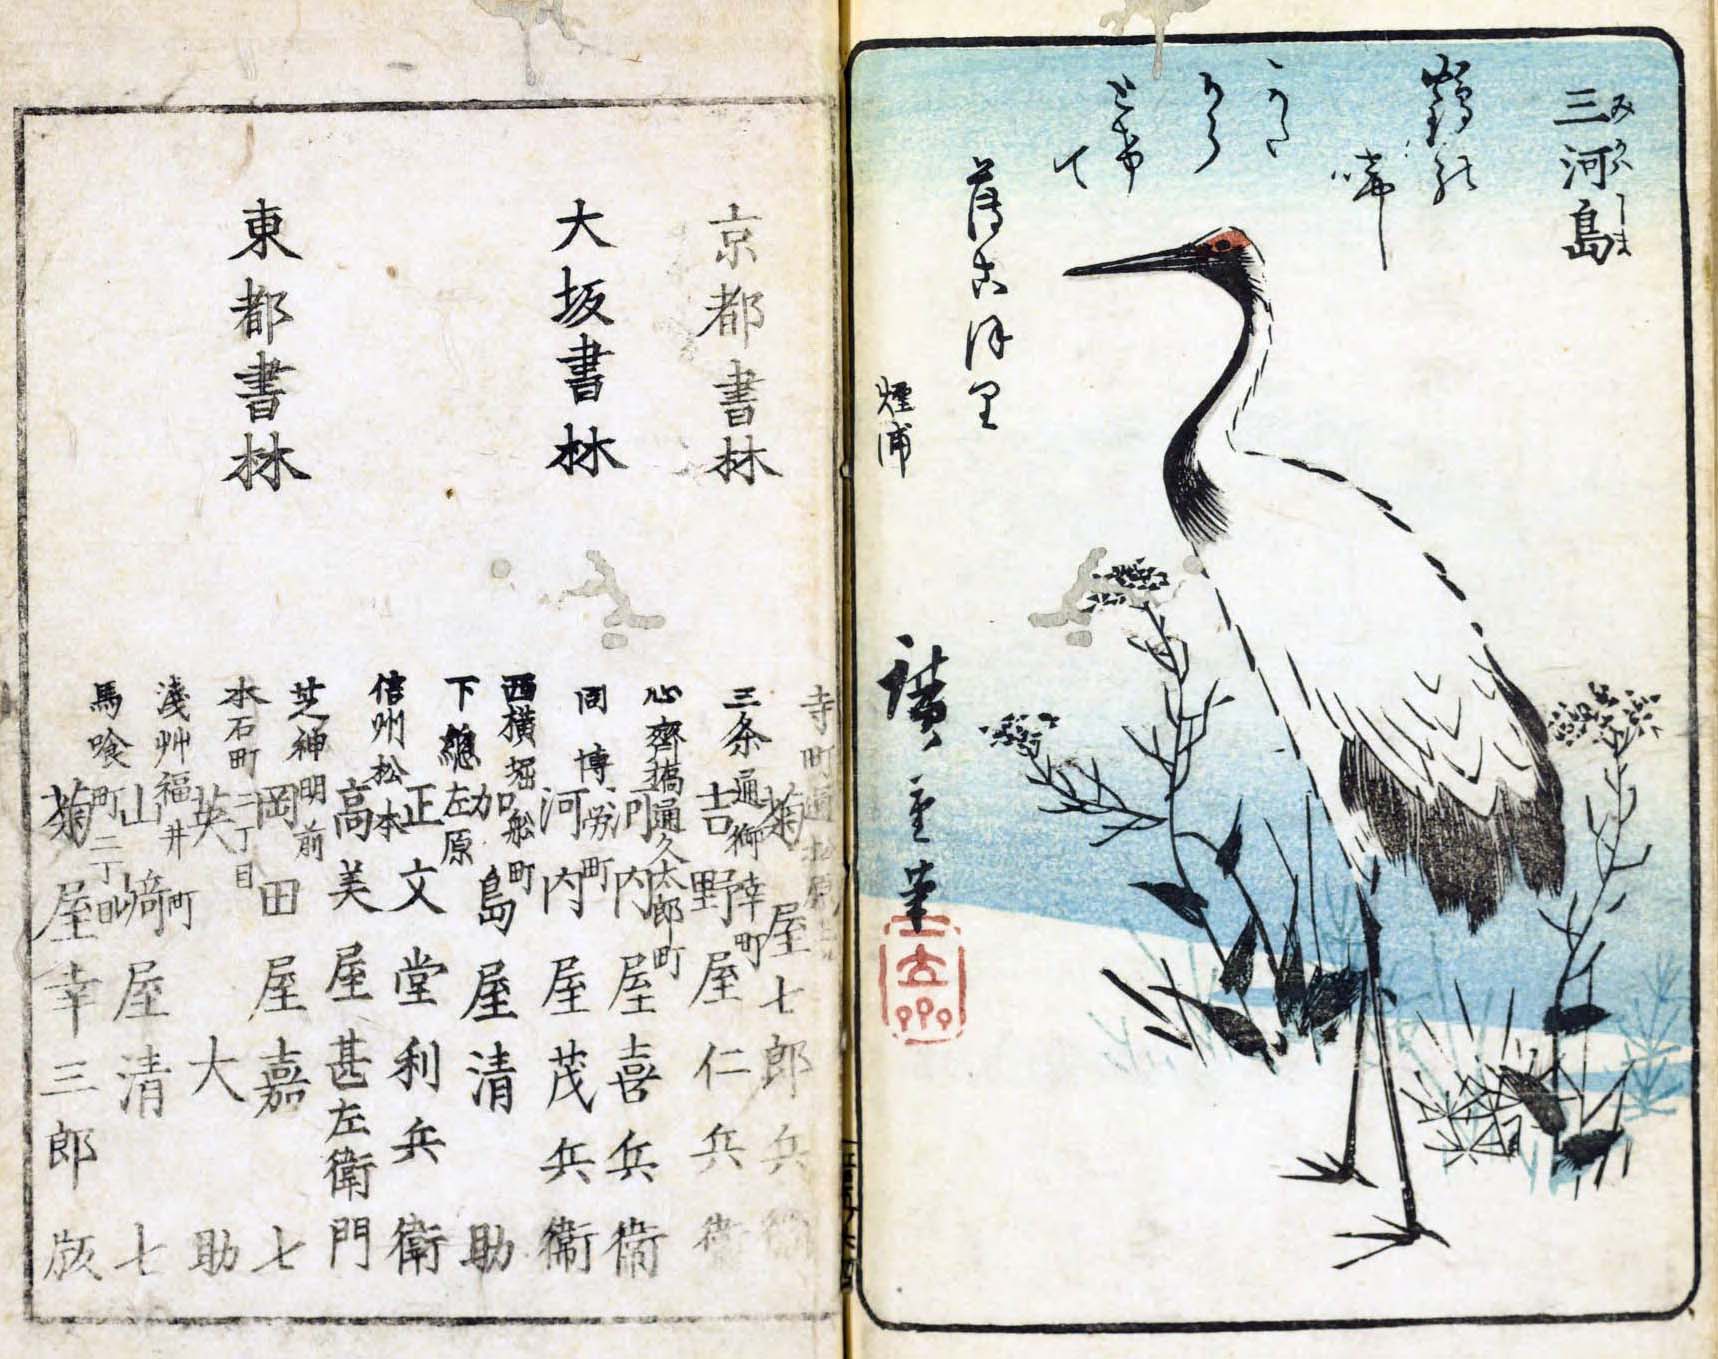 三河島
みかハしま
鶴能
啼
煙浦
廣重筆
京都書林
寺町通松原上
菊屋七郎兵衛
三条通御幸町
吉野屋仁兵衛
大坂書林
心齋橋通久太郎町
河内屋喜兵衛
同 博労町
河内屋茂兵衛
西横堀舩町
加島屋清助
下総左原
正文堂利兵衛
信州松本
高美屋甚左衛門
東都書林
芝神明前
岡田屋嘉七
本石町二丁目
英大助
淺艸福井町
山﨑屋清七
馬喰町二丁目
菊屋幸三郎版